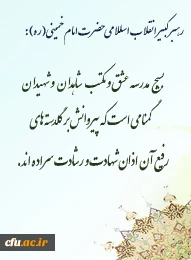 رهبر کبیر انقلاب اسلامی حضرت امام خمینی (ره):
بسیج مدرسه عشق و مکتب شاهدان و شهیدان
گمنامی است که پیروانش بر گلدسته‌های
رفیع آن اذان شهادت و رشادت سر داده اند.
cfu.ac.ir